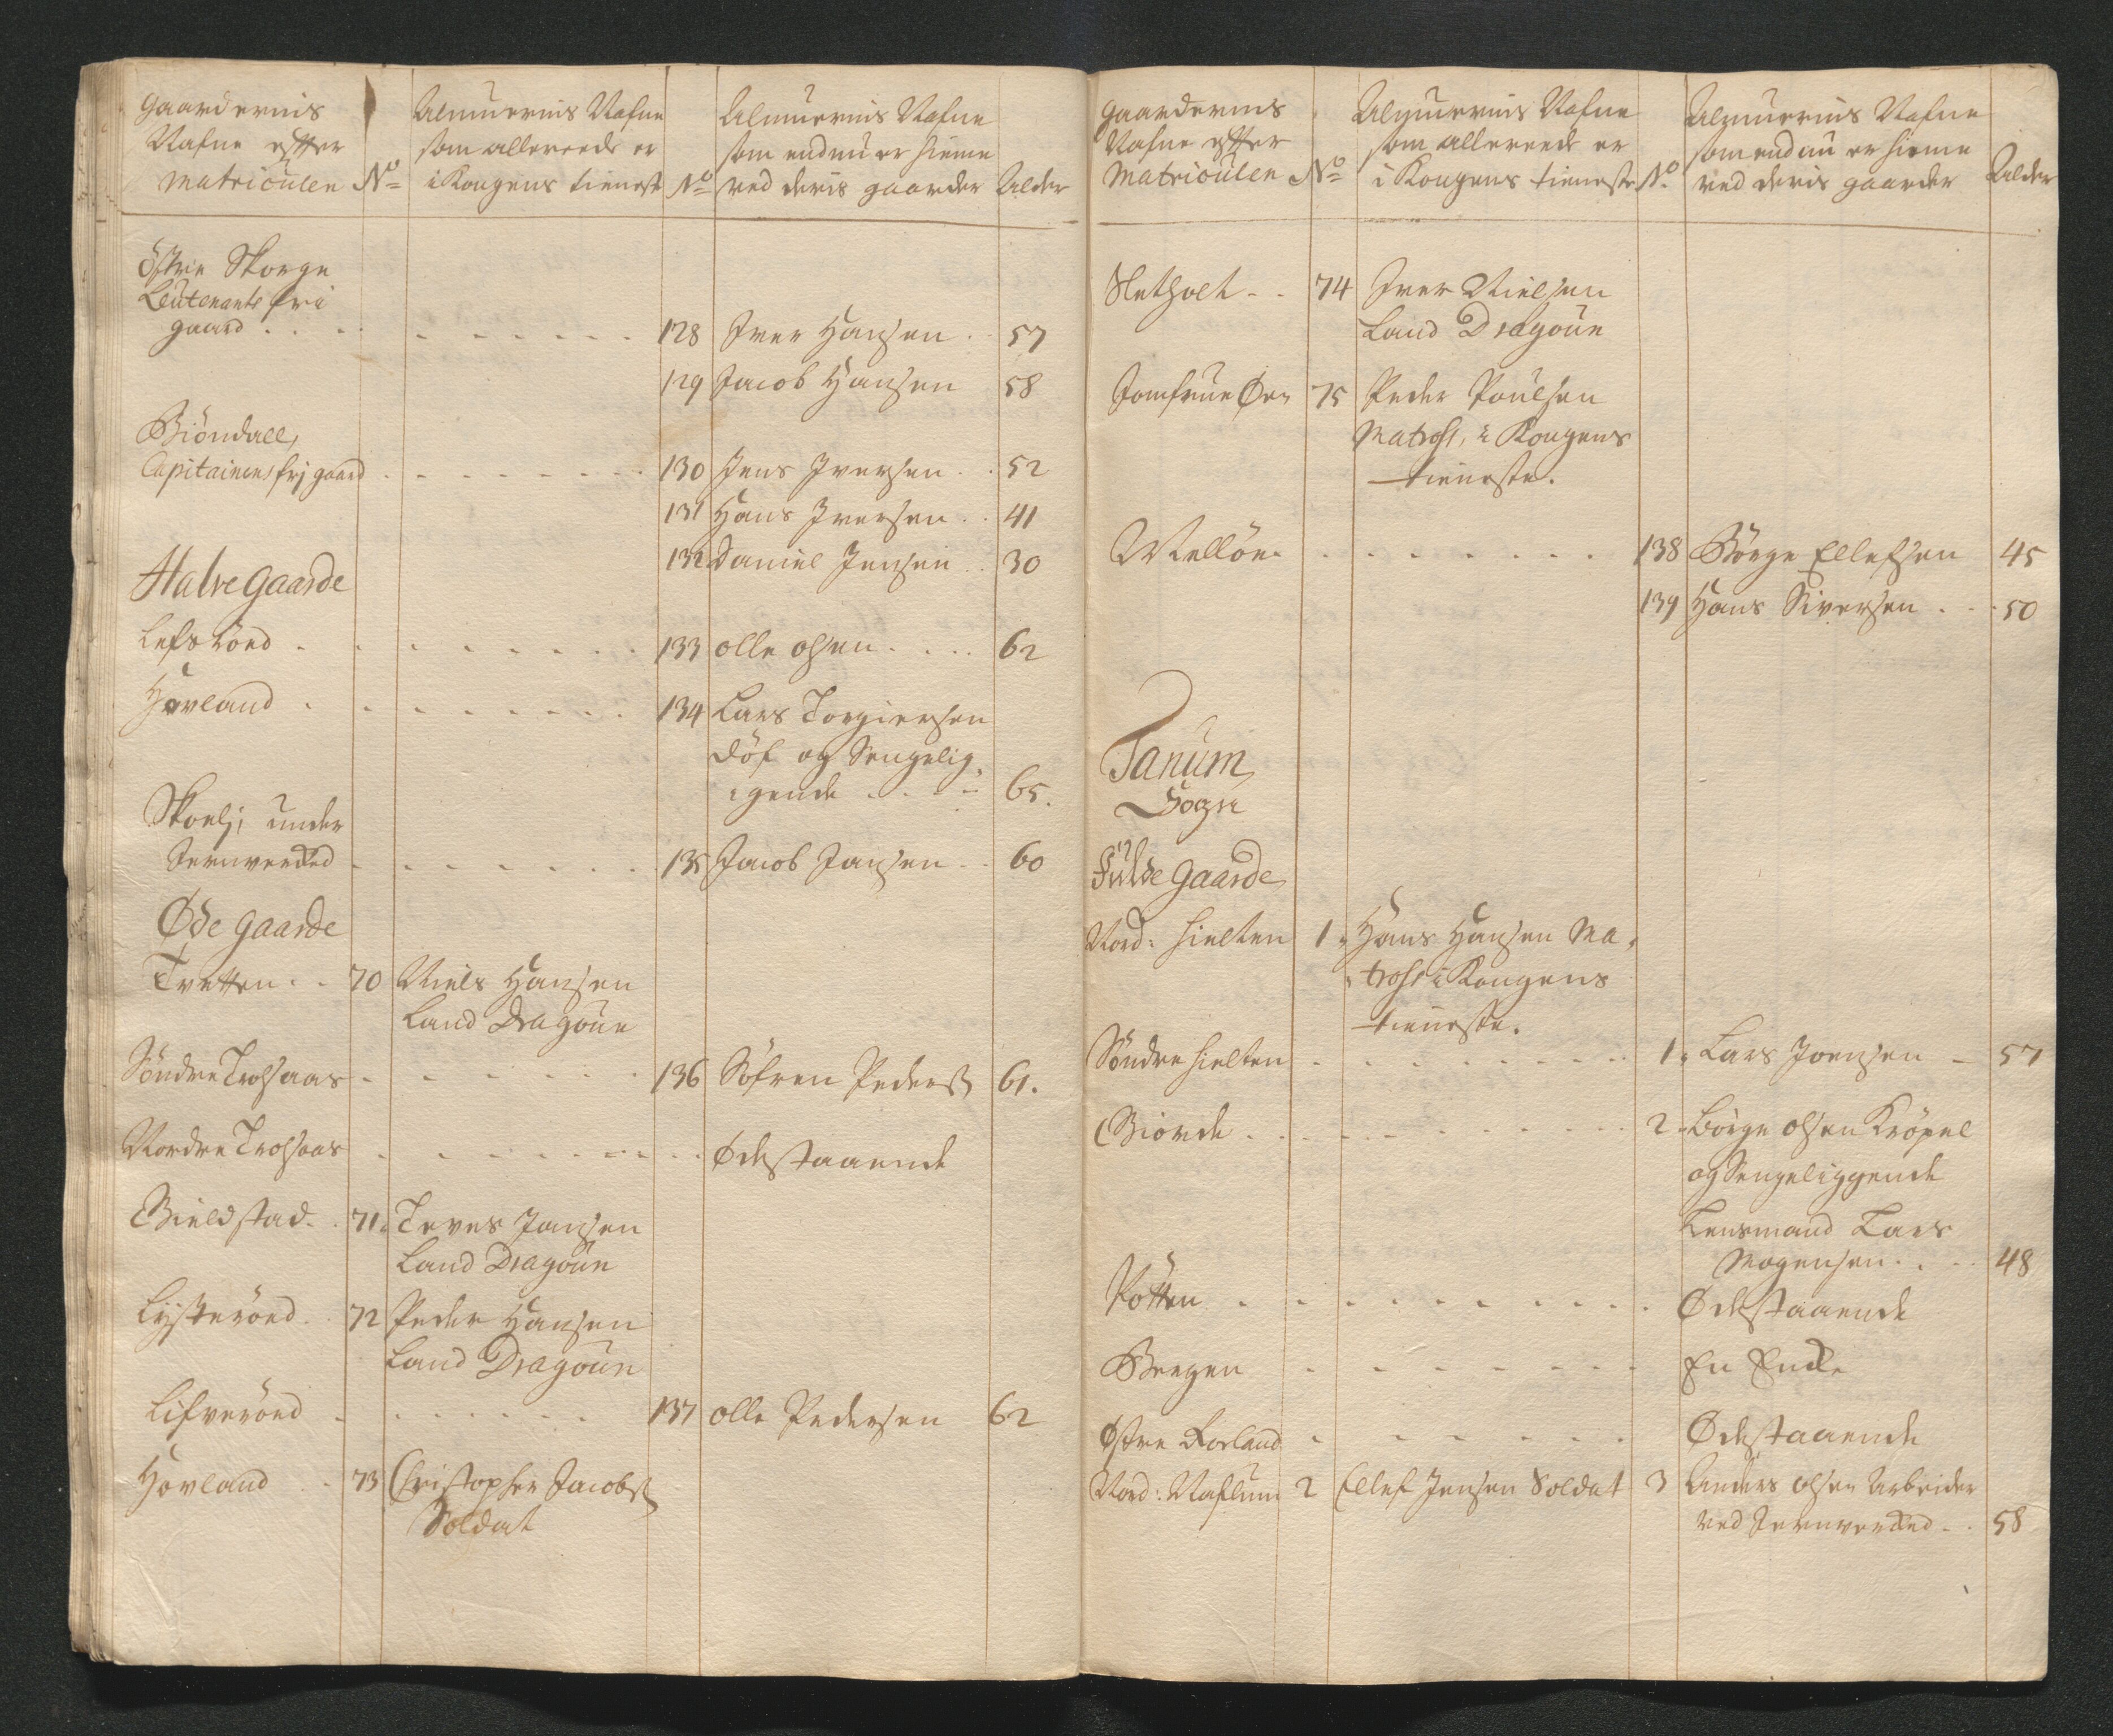 Gaardernis
Nafne efter
Matriculen No
Almuernis Nafne
som allereede er
i Kongens tienest No
Almuernis Nafne
som endnu er hieme
ved deris gaarder
Alder
Östre Skorge
Leutenants fri
gaard . . . 128 Iver Hansen . 57
129 Jacob Hansen 58
Biöndall,
Capitainens frj gaard 130 Jens Iversen . . 52
131 Hans Iversen . . 41
132 Daniel Jensen . . 30
Halve Gaarde
133 Olle Olsen . . . . 62
Hovland . 134 Lars Torgiersen
döf og Sengelig-
igende . . . 65.
under
Jernvercked 135 Jacob Jansen . . 60
Øde gaarde
Tvetten . . 70 Niels Hansen
Land Dragoun
Söndre Trolsaas 136 Söfren Peders. 61.
Nordre Trolsaas Ødestaaende
Gieldstad . . 71. Teves Jansen
Land Dragoun
Lysteröed . . 72 Peder Hansen
Land Dragoun
Lifveröed . 137 Olle Pedersen 62
Hovland . . 73 Christopher Jacobs.
Soldat
Gaardernis
Nafne efter
Matriculen No
Almuernis Nafne
som allereede er
i Kongens tieneste No.
Almuernis Nafne
som endnu er hieme
ved deris gaarder
Alder
Netholt - . 74 Iver Nielsen
Land Dragoun
Jomfrue Øen 75 Peder Poulsen
Matrohs, i Kongens
tieneste.
Melløe. 138 Börge Ellefsen 45
139 Hans Siversen . . 50
Tanum
Sogn
Fulde Gaarde
Nord: Hielten 1. Hans Hansen Ma-
trohs i Kongens
tieneste.
Söndre Hielten 1. Lars Joensen - 57
Giorde . 2. Börge Olsen Kröpel
og Sengeliggende
Lensmand Lars
Mogensen . . . 48
Rötten . Ødestaaende
Bergen En Encke
Østre Ødestaaende
Nord: Naflum 2 Ellef Jensen Soldat 3 Anders Olsen Arbeider
ved Jernvercked - . 58